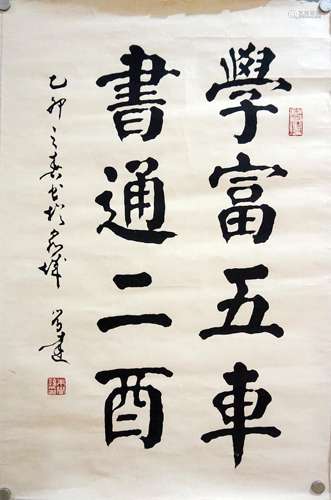 學富五車
書通二酉
乙卯之春書於